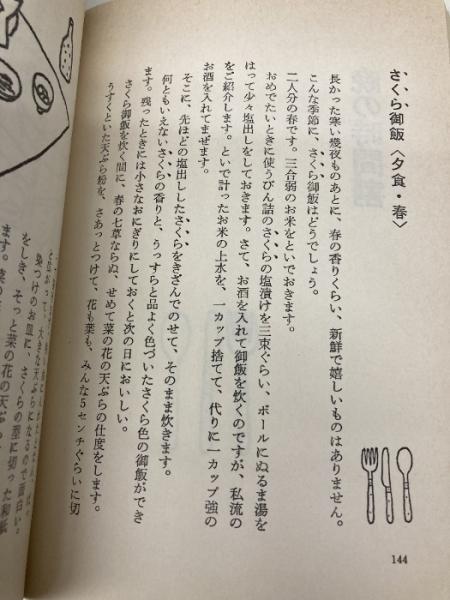 さくら御飯〈夕食・春〉
長かった寒い幾夜ものあとに、春の香りくらい、新鮮で嬉しいものはありません。
こんな季節に、さくら御飯はどうでしょう。
二人分の春です。三合弱のお米をといでおきます。
おめでたいときに使うびん詰のさくらの塩漬けを三束ぐらい、ボールにぬるま湯を
はって少々塩出しをしておきます。さて、お酒を入れて御飯を炊くのですが、私流の
をご紹介します。といで計ったお米の上水を、一カップ捨てて、代りに一カップ強の
お酒を入れてまぜます。
そこに、先ほどの塩出ししたさくらをきざんでのせて、そのまま炊きます。
何ともいえないさくらの香りと、うっすらと品よく色づいたさくら色の御飯ができ
ます。残ったときには小さなおにぎりにしておくと次の日においしい。
さくら御飯を炊く間に、春の七草ならぬ、せめて菜の花の天ぷらの仕度をします。
うすくといた天ぷら粉を、さあっとつけて、花も葉も、みんな5センチぐらいに切
大きな天ぷらになるので面白い。
染つけのお皿に、さくらの型に切った和紙
をしき、そっと菜の花の天ぷ
ます。菜
144